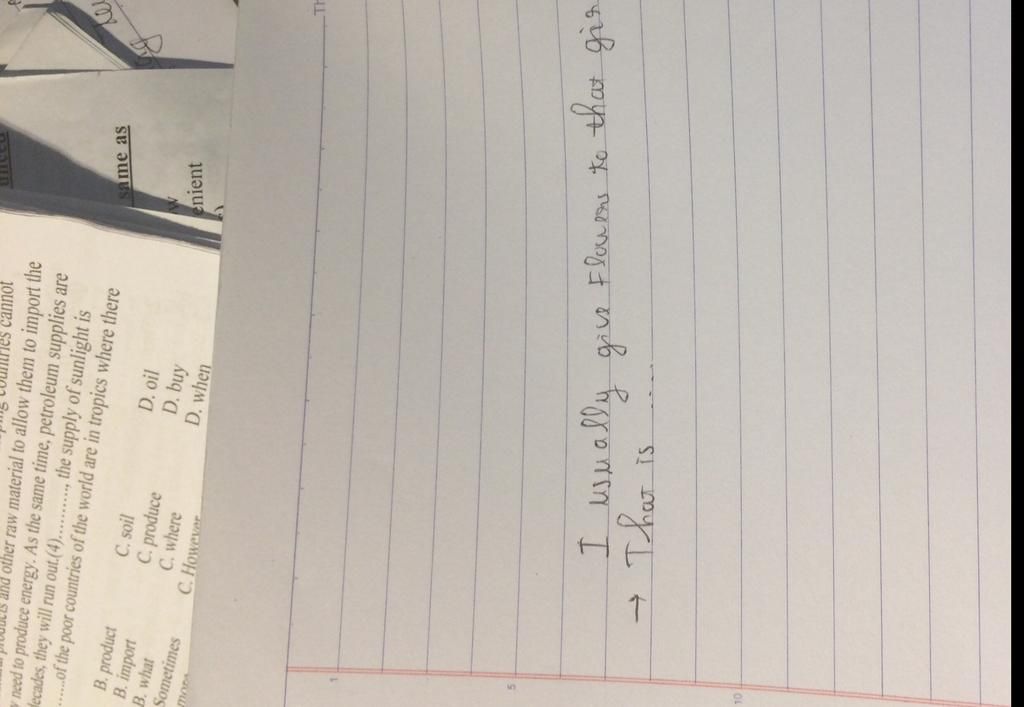 countries cannot
products and other raw material to allow them to import the
need to produce energy. As the same time, petroleum supplies are
decades, they will run out.(4)..........., the supply of sunlight is
......of the poor countries of the world are in tropics where there
B. product C. soil D. oil
B. import C. produce D. buy
B. what C. where D. when
Sometimes C. However
same as
enient
1
5
10
I usually give Flowers to that gir
→ That is ......